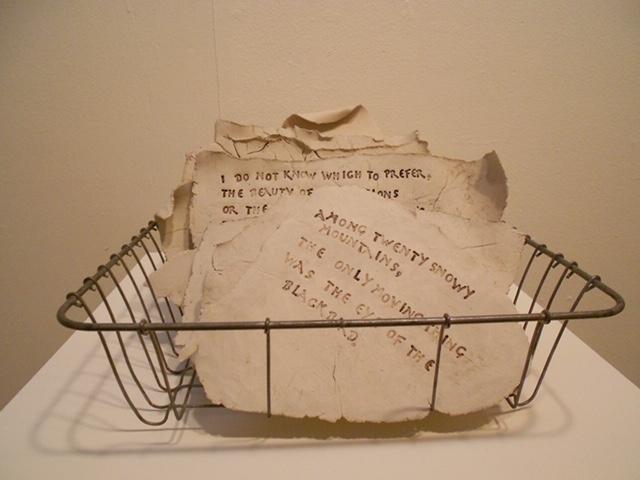 I DO NOT KNOW WHICH TO PREFER,
THE BEAUTY OF
OR THE
AMONG TWENTY SNOWY
MOUNTAINS,
THE ONLY MOVING THING
WAS THE EYE OF THE
BLACKBIRD.